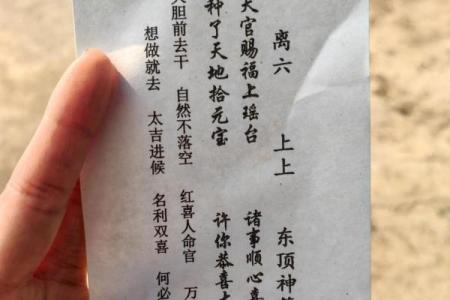 离六 上上 东顶神
天官赐福上瑶台 诸事顺心喜
种了天地拾元宝 许你恭喜
大胆前去干 自然不落空 红喜人命官 万
想做就去 太吉进候 名利双喜 何必